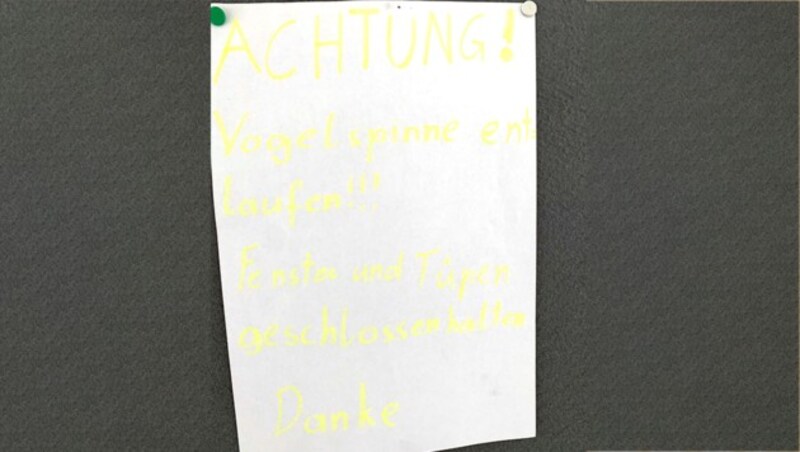 ACHTUNG!
Vogelspinne ent
laufen!!!
Fenster und Türen
geschlossen halten
Danke